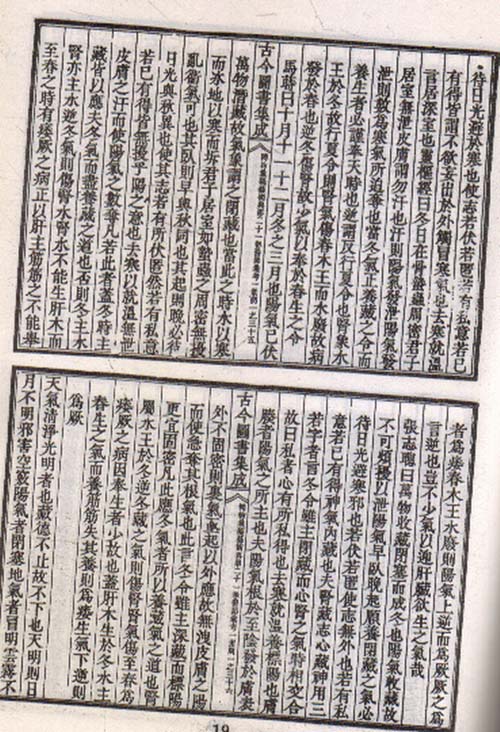 待日光避於寒也使志若伏若匿若有私意若已
有得皆謂不欲妄出於外觸冒寒氣也去寒就溫
言居深室也靈樞經曰冬日在骨蟄蟲周密君子
居室無泄皮膚謂勿汗也汗則陽氣發泄陽氣發
泄則數為寒氣所迫奪也當冬氣正養藏之令而
養生者必謹奉天時也逆謂反行夏令也腎象水
王於冬故行夏令則腎氣傷春木王而水廢故病
發於春也逆冬傷腎故少氣以奉於春生之令
馬蒔曰十月十一十二月冬之三月也陽氣已伏
古今圖書集成
萬物潛藏故氣象謂之閉藏也當此之時水以寒
而冰地以寒而坼君子居室如蟄蟲之周密無擾
亂衛氣可也其臥則早與秋同也其起則晚必待
日光與秋異也使其志若有所伏匿然若有私意
若已有得皆無擾乎陽之意也去寒以就溫無泄
皮膚之汗而使陽氣之數奪凡若此者蓋冬時主
藏皆以應夫冬氣而盡養藏之道也否則冬主水
腎亦主水逆冬氣則傷腎水腎水不能生肝木而
至春之時有痿厥之病正以肝主筋筋之不能舉
者為痿春木王水廢則陽氣上逆而為厥厥之為
言逆也豈不少氣以迎肝臟欲生之氣哉
張志聰曰萬物收藏閉塞而成冬也陽氣收藏故
不可煩擾以泄陽氣早臥晚起順養閉藏之氣必
待日光避寒邪也若伏若匿使志無外也若有私
意若已有得神氣內藏也夫腎藏志心藏神用三
若字者言冬令雖主閉藏而心腎之氣時相交合
故曰私者心有所私得也去寒就溫養標陽也膚
腠者陽氣之所主也夫陽氣根於至陰發於膚表
古今圖書集成
外不固密則裏氣亟起以外應故無洩皮膚之陽
而使亟奪其根氣也此言冬令雖主深藏而標陽
更宜固密凡此應冬氣者所以養藏氣之道也腎
屬水王於冬逆冬藏之氣則傷腎腎氣傷至春為
痿厥之病因奉生者少故也蓋肝木生於冬水主
春生之氣而養筋筋失其養則為痿生氣下逆則
為厥
天氣清淨光明者也藏德不止故不下也天明則日
月不明邪害空竅陽氣者閉塞地氣者冒明雲霧不
19